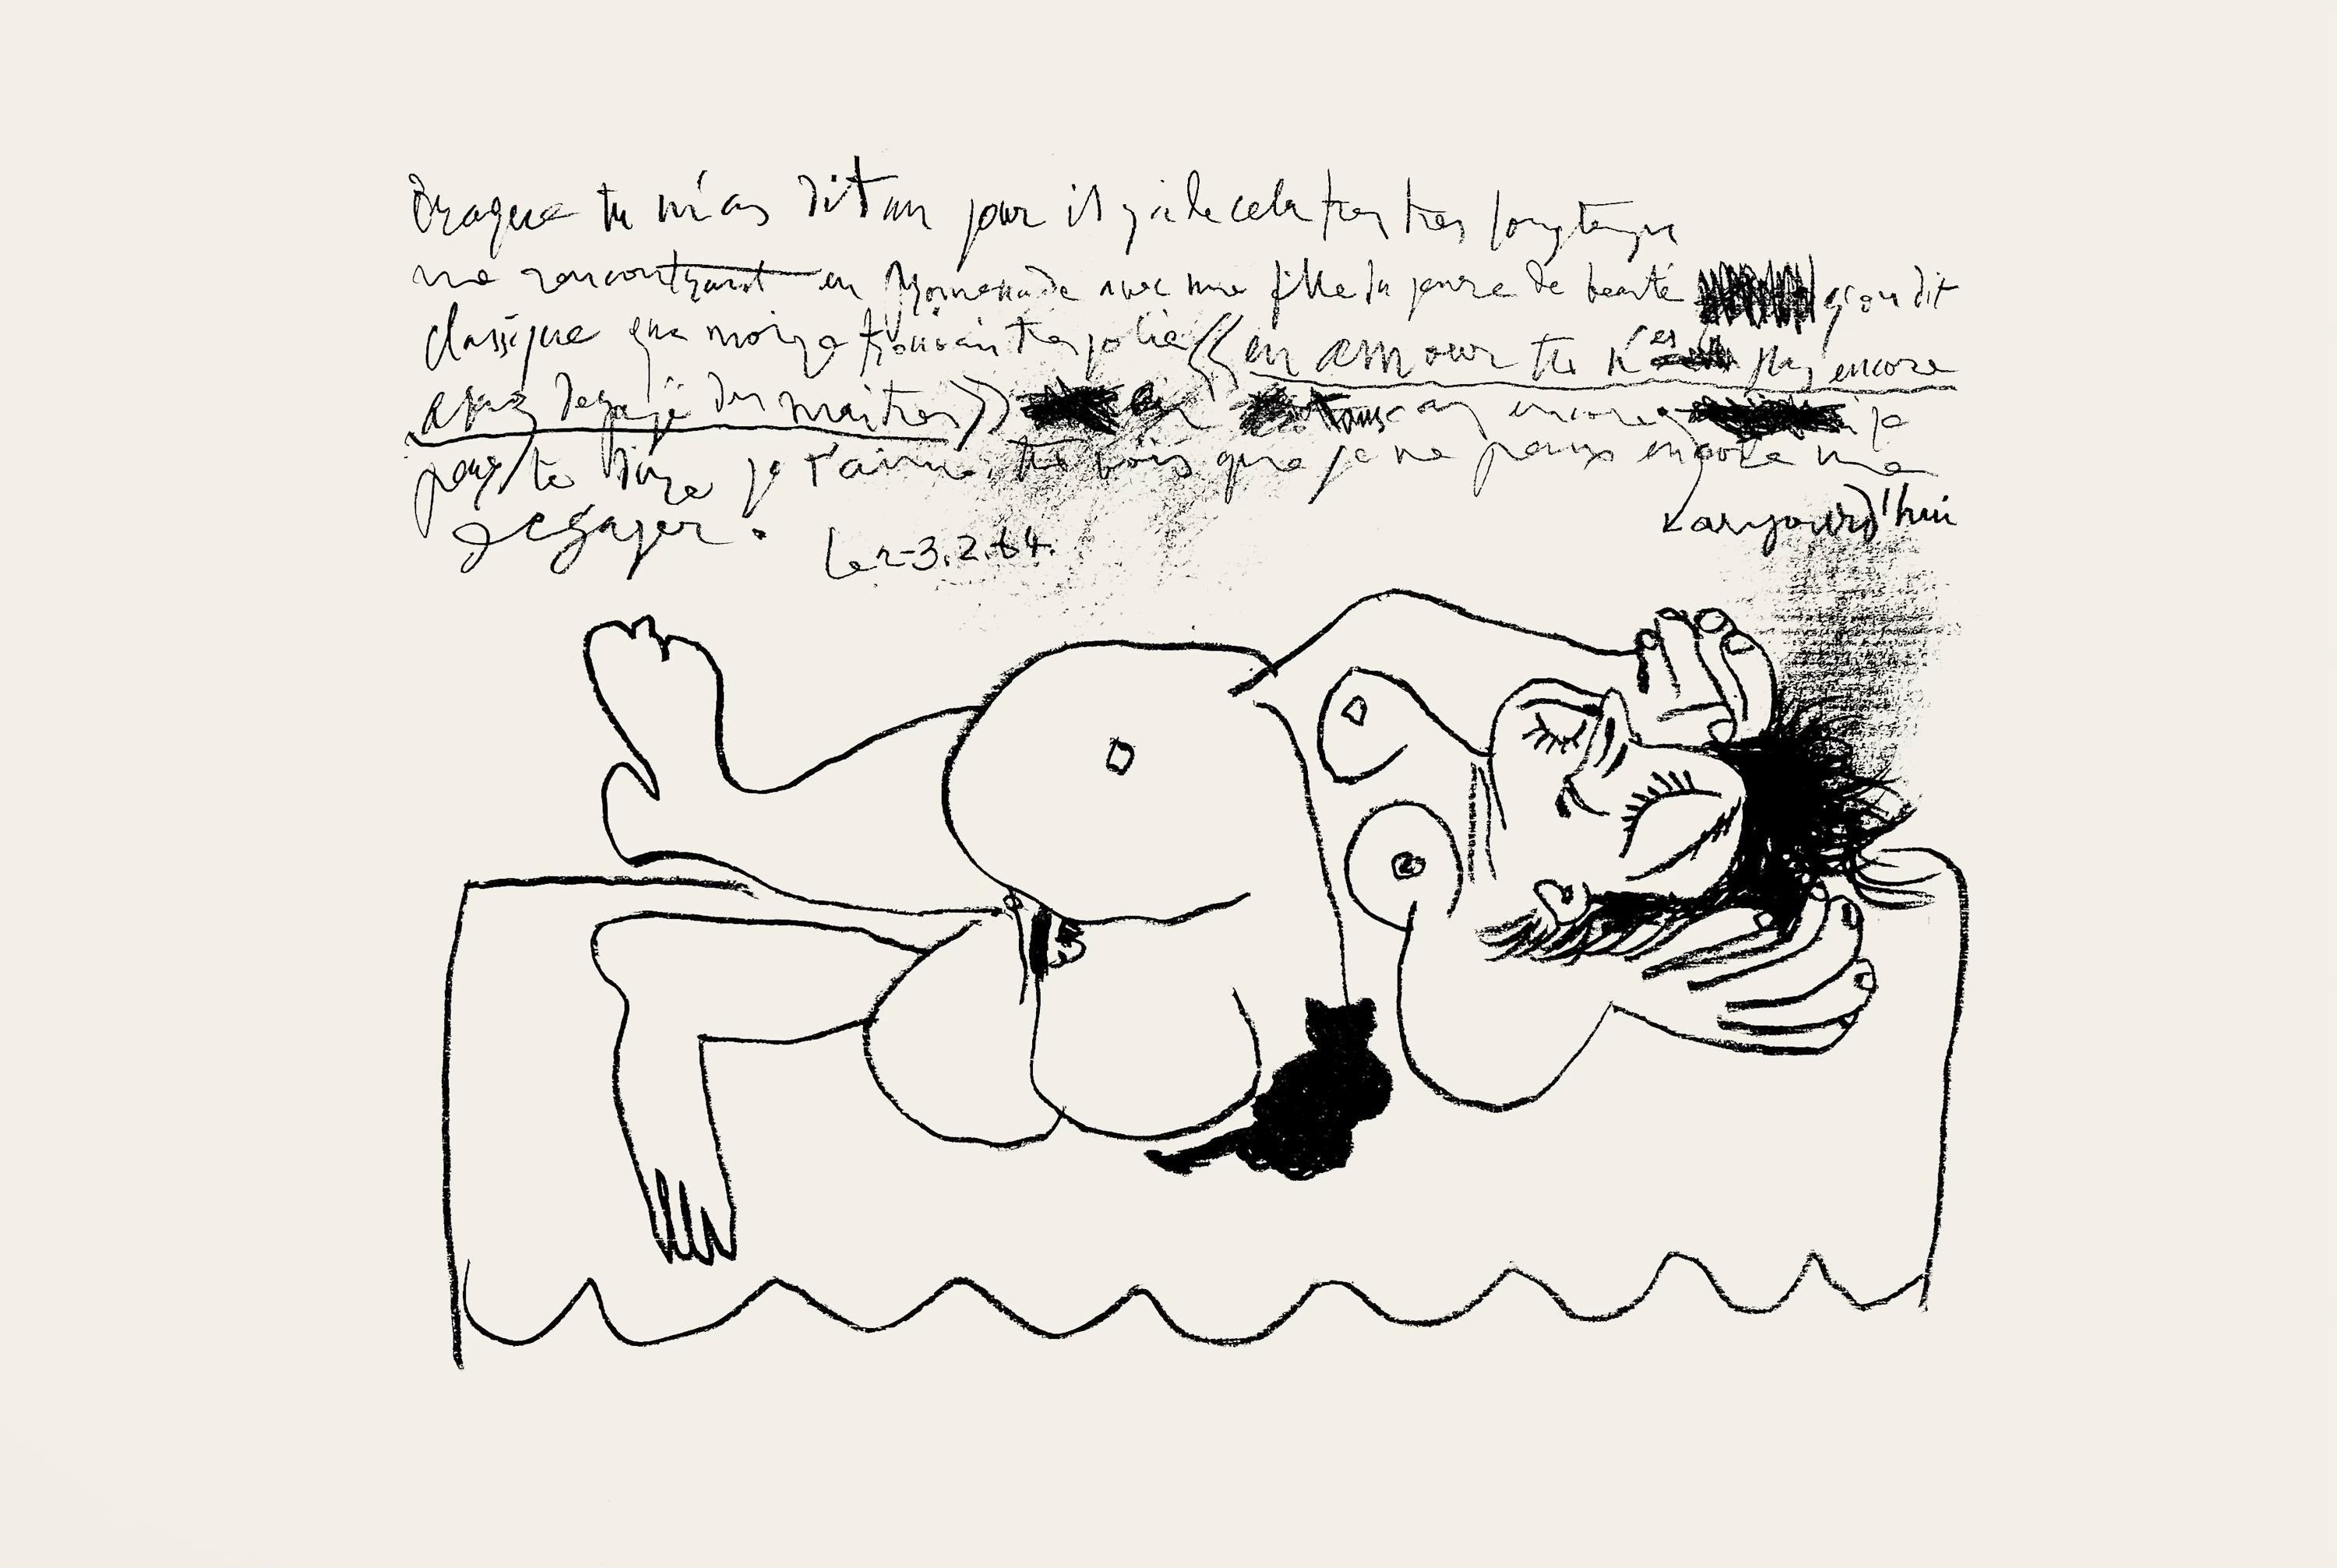 Braque tu m'as dit un jour il y a de cela très très longtemps
me rencontrant en promenade avec une fille du genre de beauté qu'on dit
classique que moi je trouvais très jolie « en amour tu n'es pas encore
assez dégagé des maitres » en tous cas encore je
peux te dire je t'aime, tu vois que je ne peux encore me
aujourd'hui
dégager. Le 2-3.2.64.